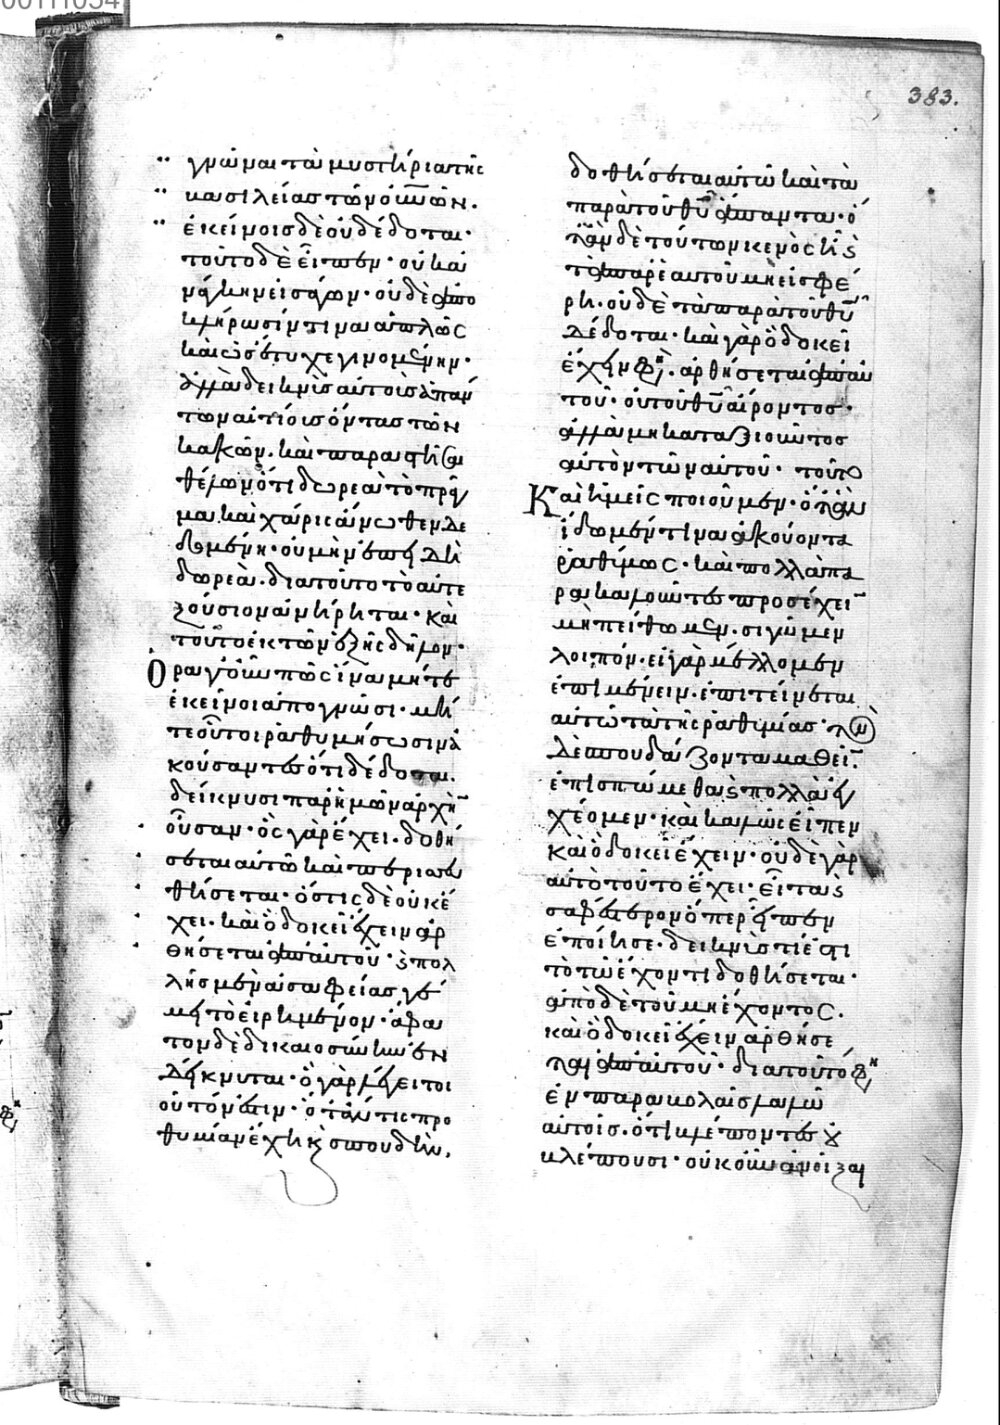 383.
γνῶναι τὰ μυστήρια τῆς
βασιλείας τῶν οὐνῶν.
ἐκείνοις δὲ οὐ δέδοται·
τοῦτο δὲ εἶπεν· οὐκ ἀ
νάγκην εἰσάγων· οὐδὲ ἀπο
κλήρωσίν τινα ἁπλῶς
καὶ ὡς ἔτυχε γινομένην·
ἀλλὰ δεικνὺς αὐτοὺς ἁπάν
των αἰτίους ὄντας τῶν
κακῶν. καὶ παραστῆσαι
θέλων ὅτι δωρεὰ τὸ πρᾶγ
μα καὶ χάρις ἄνωθεν δε
δομένη· οὐ μὴν ἐπειδὴ
δωρεά. διατοῦτο τὸ αὐτε
ξούσιον ἀνήρηται· καὶ
τοῦτο ἐκ τῶν ἑξῆς δῆλον·
Ὅρα γοῦν πῶς ἵνα μήτε
ἐκεῖνοι ἀπογνῶσι· μή
τε οὗτοι ῥαθυμήσωσιν ἀ
κούσαντες ὅτι δέδοται.
δείκνυσι παρ' ἡμῶν ἀρχὴν
οὖσαν· ὃς γὰρ ἔχει· δοθή
σεται αὐτῶ καὶ περισσευ
θήσεται· ὅστις δὲ οὐκ ἔ
χει. καὶ ὃ δοκεῖ ἔχειν ἀρ
θήσεται ἀπαυτοῦ· καὶ πολ
λῆς μὲν ἀσαφείας γέ
μει τὸ εἰρημένον· ἄφα
τον δὲ δικαιοσύνην ἐν
δείκνυται· ὃ γὰρ λέγει τοι
οῦτόν ἐστιν· ὅταν τις προ
θυμίαν ἔχη καὶ σπουδὴν.
δοθήσεται αὐτῶ καὶ τὰ
παρὰ τοῦ θυ ἅπαντα· ὅ
ταν δὲ τούτων κενὸς ἦ καὶ
τὰ παρ' ἑαυτοῦ μὴ εἰσφέ
ρη. οὐδὲ τὰ παρὰ τοῦ θυ
δέδοται· καὶ γὰρ ὃ δοκεῖ
ἔχειν φησὶ. ἀρθήσεται ἀπαυ
τοῦ· οὐ τοῦ θυ αἴροντος·
ἀλλὰ μὴ καταξιοῦντος
αὐτὸν τῶν αὐτοῦ· τοῦτο
Καὶ ἡμεῖς ποιοῦμεν· ὅταν
ἴδωμέν τινα ἀκούοντα
ῥαθύμως· καὶ πολλὰ πα
ρακαλοῦντες προσέχειν
μὴ πείθωμεν. σιγῶμεν
λοιπόν. εἰ γὰρ μέλλομεν
ἐπιμένειν. ἐπιτείνεται
αὐτῶ τὰ τῆς ῥαθυμίας· τὸν
δὲ σπουδάζοντα μαθεῖν.
ἐπισπώμεθα καὶ πολλὰ ἐγ
χέομεν· καὶ καλῶς εἶπεν
καὶ ὃ δοκεῖ ἔχειν· οὐδὲ γὰρ
αὐτὸ τοῦτο ἔχει· εἶτα καὶ
σαφέστερον ὅπερ εἶπεν
ἐποίησε. δεικνὺς τί ἐστι
τὸ τῶ ἔχοντι δοθήσεται·
ἀπὸ δὲ τοῦ μὴ ἔχοντος.
καὶ ὃ δοκεῖ ἔχειν ἀρθήσε
ται ἀπαυτοῦ· διατοῦτο φησὶν
ἐν παραβολαῖς λαλῶ
αὐτοῖς. ὅτι βλέποντες οὐ
βλέπουσι· οὐκοῦν ἀνοῖξαι